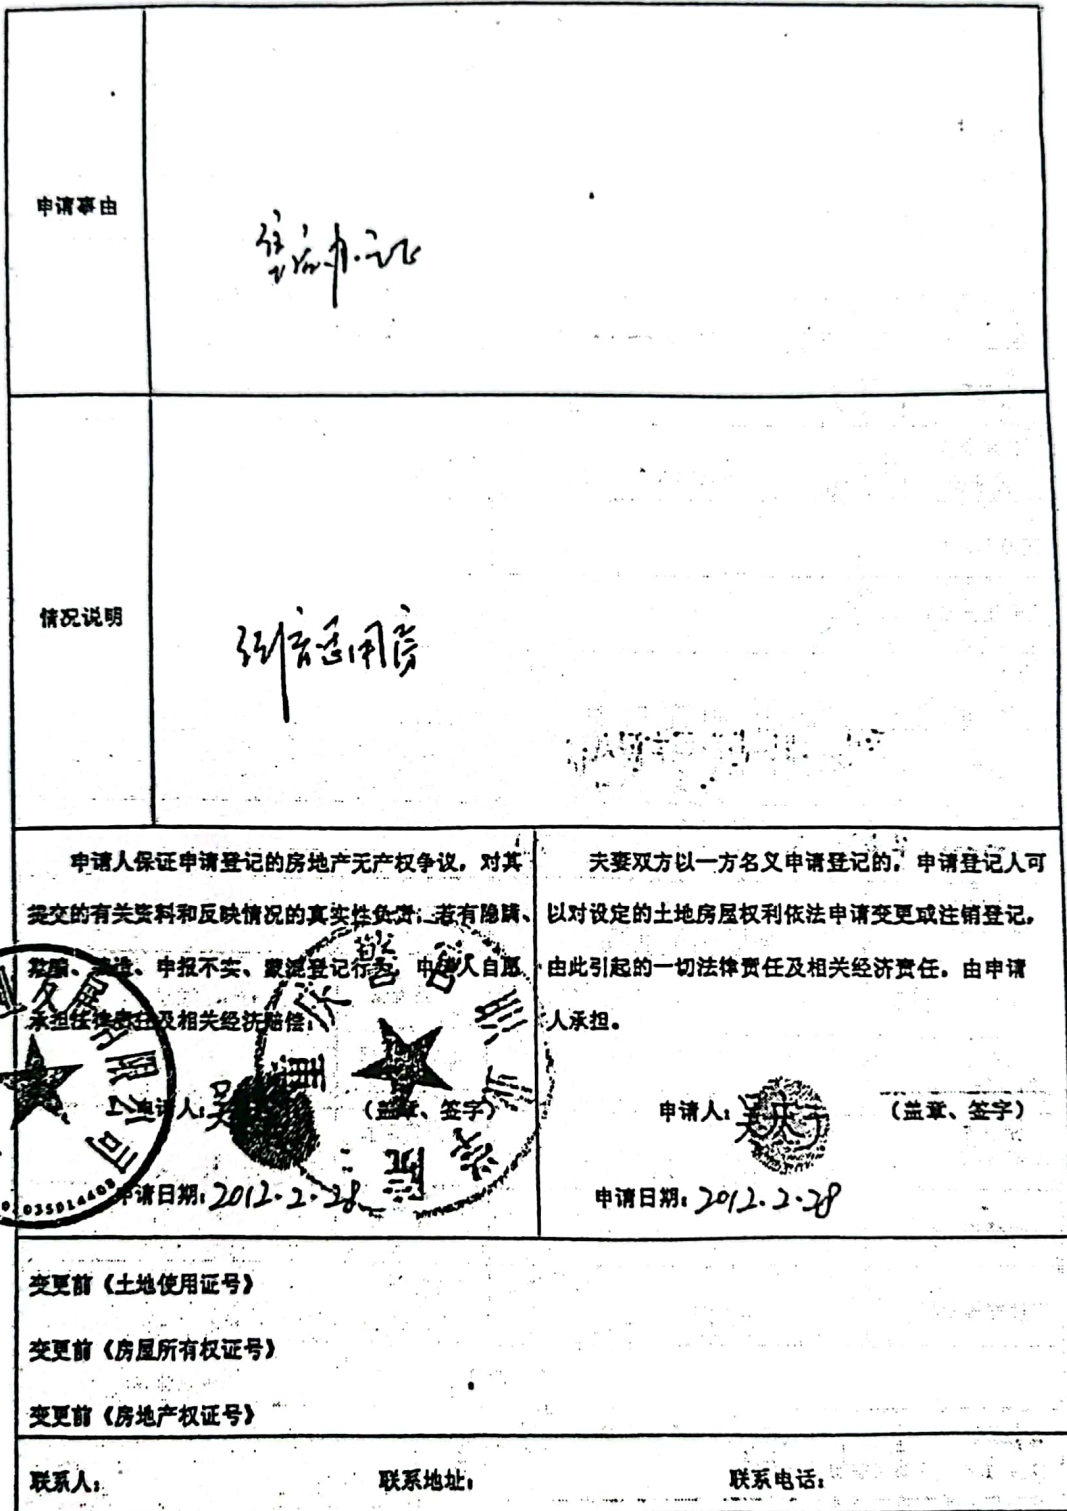 申请事由
住房办证
情况说明
经济适用房
申请人保证申请登记的房地产无产权争议，对其
提交的有关资料和反映情况的真实性负责；若有隐瞒、
欺骗、、申报不实、蒙混登记行为，申请人自愿
承担法律责任及相关经济赔偿。
申请人：吴（盖章、签字）
申请日期：2012.2.28
夫妻双方以一方名义申请登记的，申请登记人可
以对设定的土地房屋权利依法申请变更或注销登记。
由此引起的一切法律责任及相关经济责任，由申请
人承担。
申请人：吴庆于（盖章、签字）
申请日期：2012.2.28
业发展有限公司
重庆警官职业学院
变更前《土地使用证号》
变更前《房屋所有权证号》
变更前《房地产权证号》
联系人： 联系地址： 联系电话：